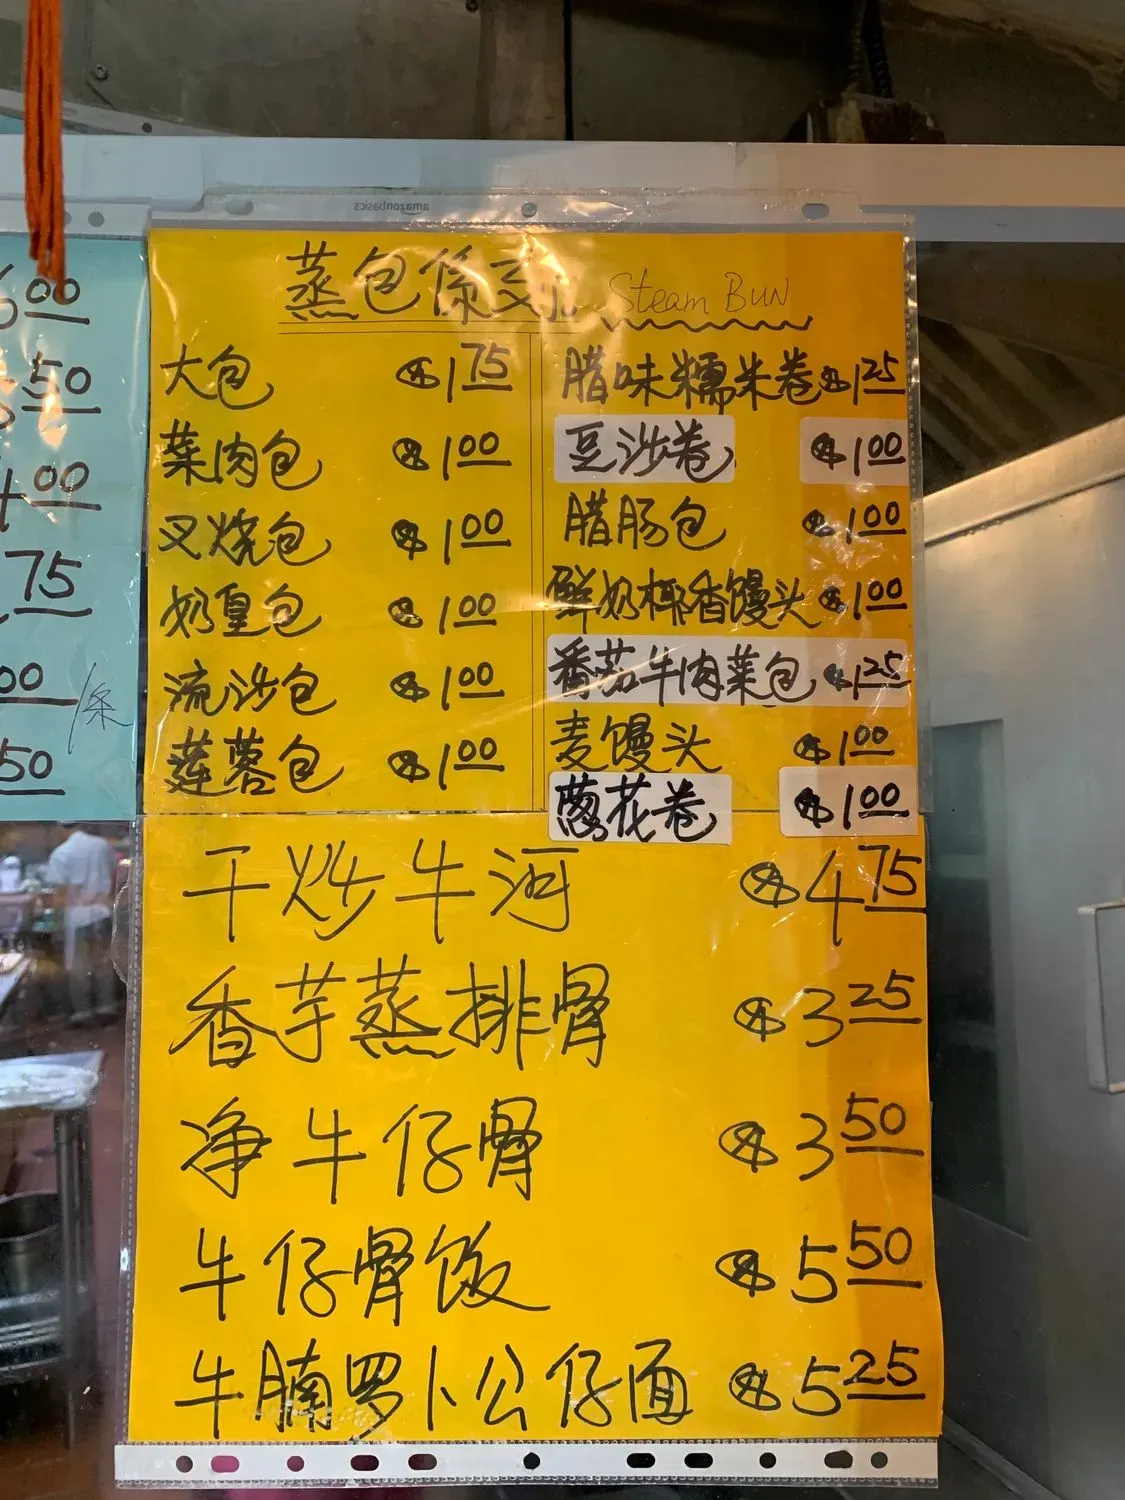 amazonbasics
蒸包係列 Steam BUN
大包 $1.75
菜肉包 $1.00
叉烧包 $1.00
奶皇包 $1.00
流沙包 $1.00
莲蓉包 $1.00
腊味糯米卷 $1.25
豆沙卷 $1.00
腊肠包 $1.00
鲜奶椰香馒头 $1.00
番茄牛肉菜包 $1.25
麦馒头 $1.00
葱花卷 $1.00
干炒牛河 $4.75
香芋蒸排骨 $3.25
净牛仔骨 $3.50
牛仔骨饭 $5.50
牛腩罗卜公仔面 $5.25
00
50
00
75
00/条
50